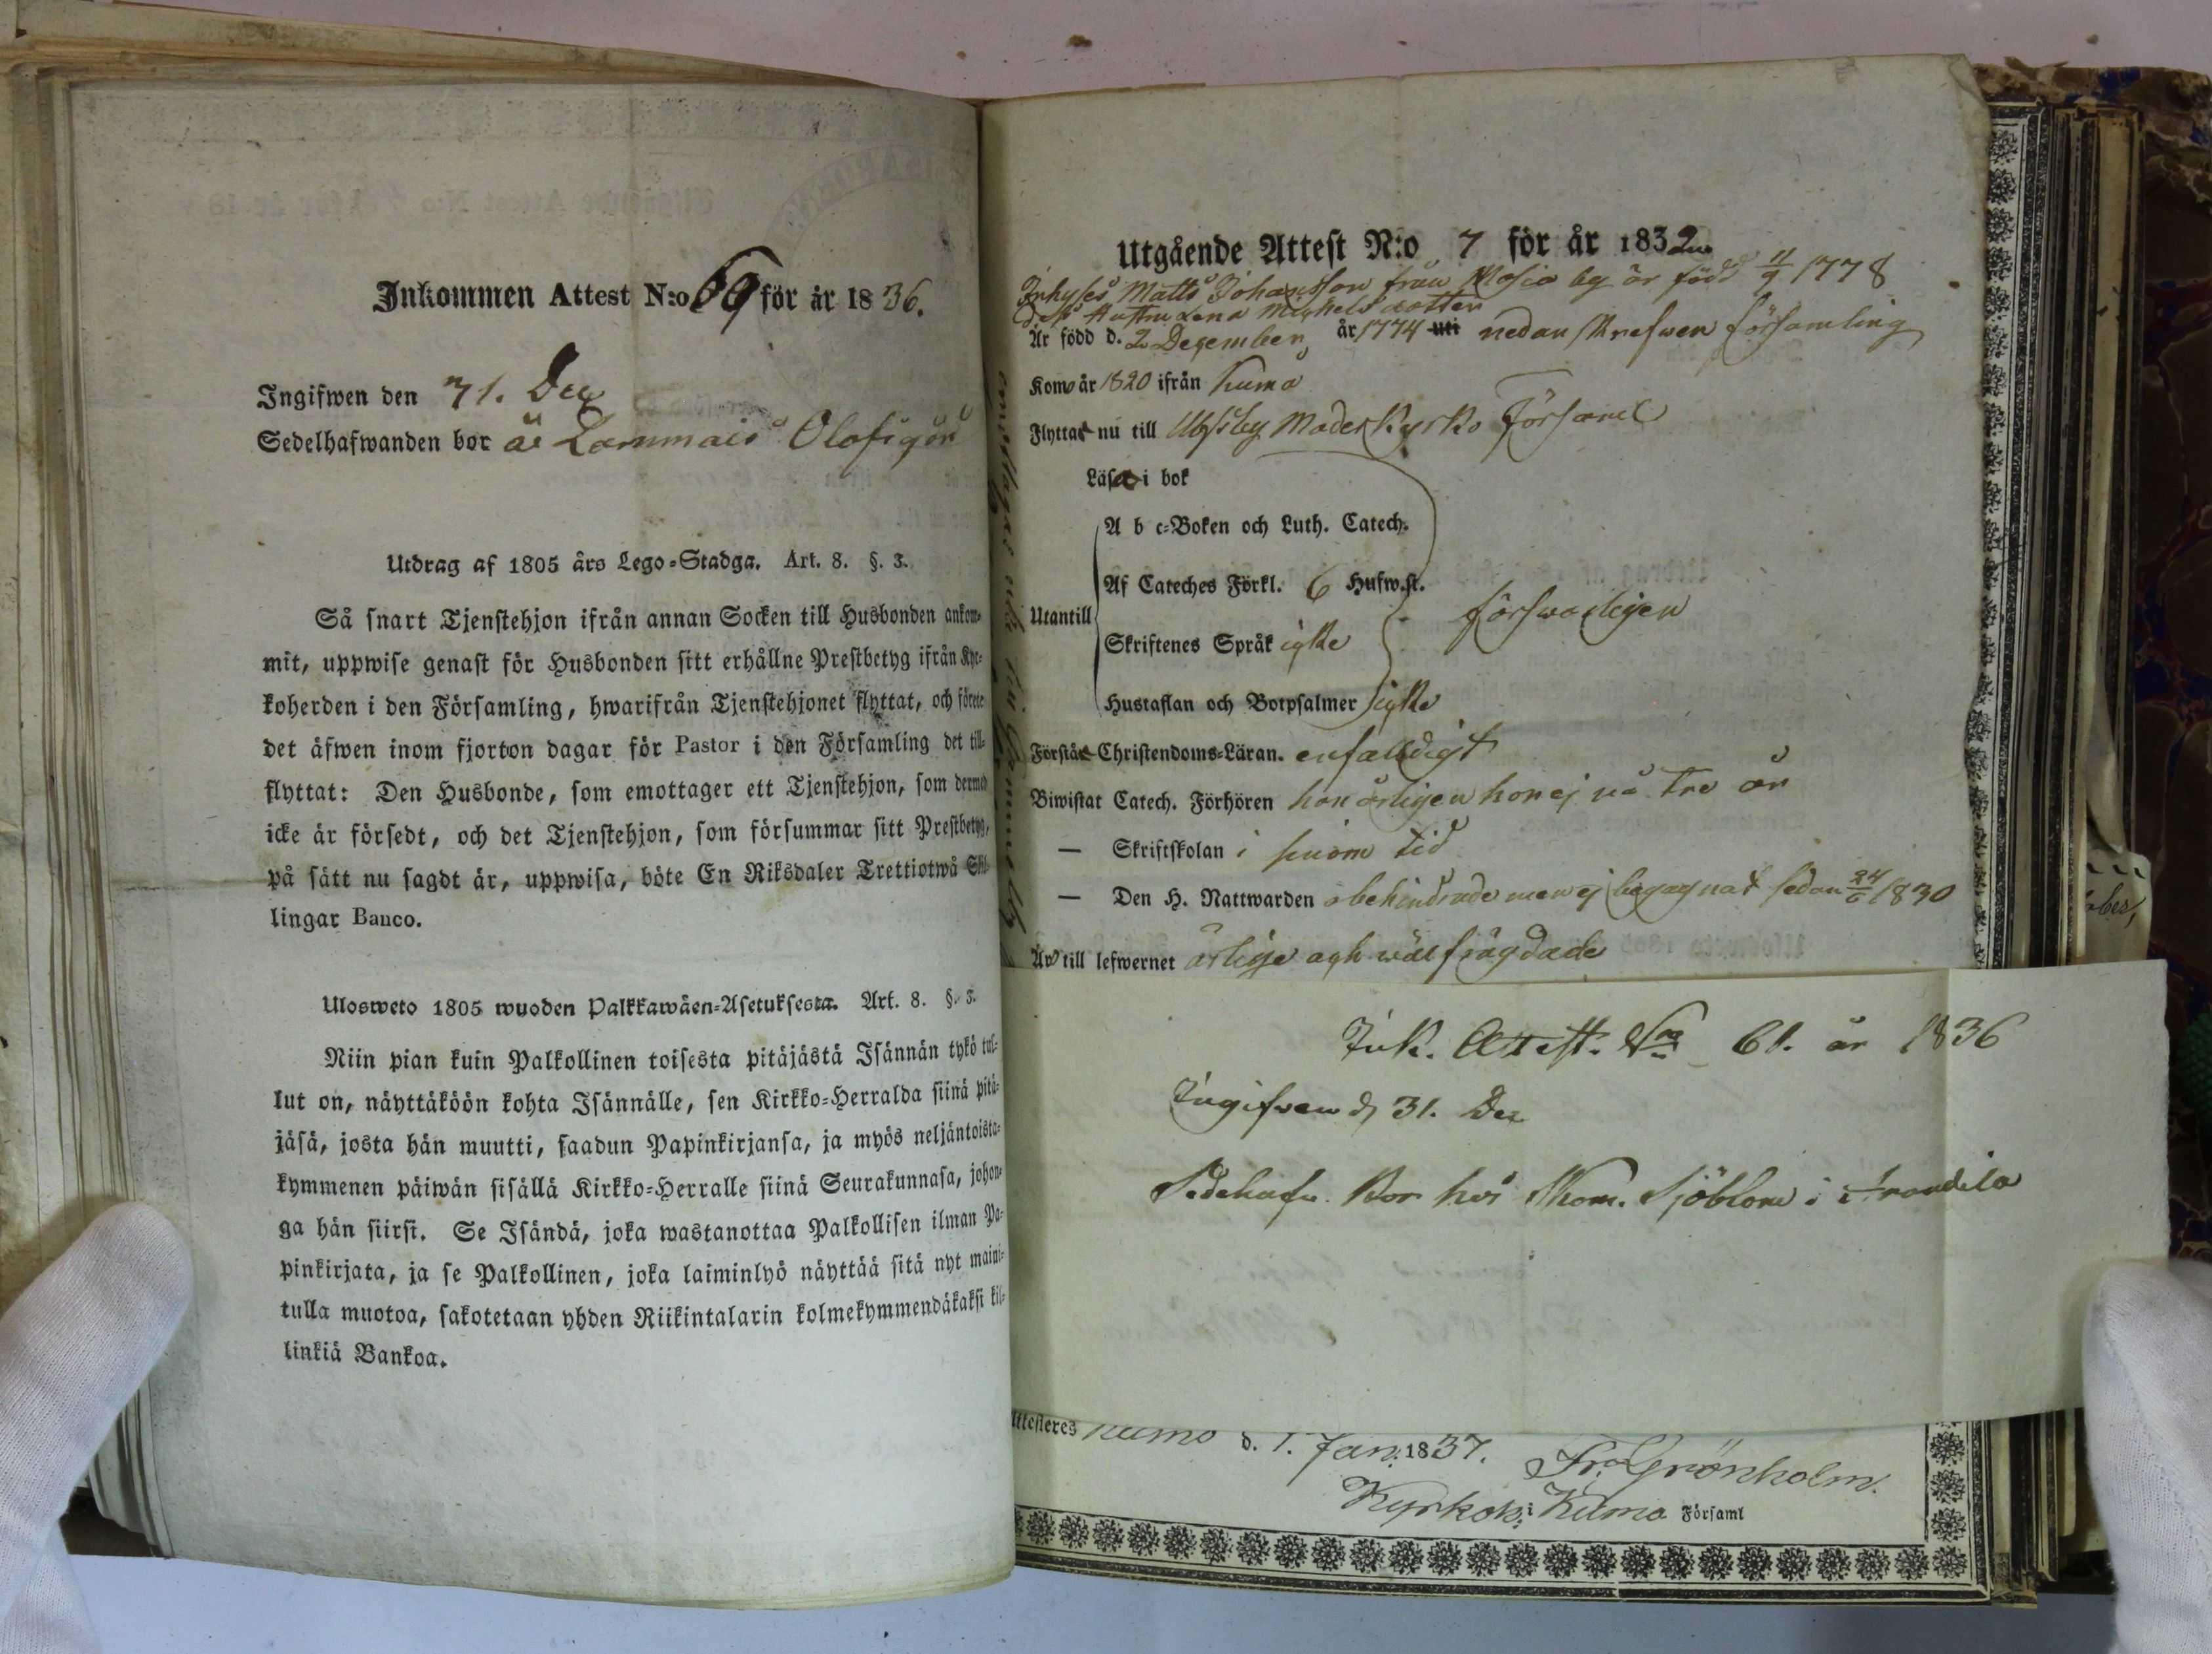 Inkommen Attest N:o 69 för år 1836.
Ingifwen den 31. Dec
Sedelhafwanden bor Lammais Olofsgård
Utdrag af 1805 års Lego-Stadga. Art. 8. §. 3.
Så snart Tjenstehjon ifrån annan Socken till Husbonden ankom-
mit, uppwise genast för Husbonden sitt erhållne Prestbetyg ifrån Kyr-
koherden i den Församling, hwarifrån Tjenstehjonet flyttat, och förete
det äfwen inom fjorton dagar för Pastor i den Församling det till-
flyttat: Den Husbonde, som emottager ett Tjenstehjon, som dermed
icke är försedt, och det Tjenstehjon, som försummar sitt Prestbetyg,
på sätt nu sagdt är, uppwisa, böte En Riksdaler Trettiotwå Skil-
lingar Banco.
Ulosweto 1805 wuoden Palkkawäen-Asetuksesta. Art. 8. §. 3.
Niin pian kuin Palkollinen toisesta pitäjästä Isännän tykö tul-
lut on, näyttäköön kohta Isännälle, sen Kirkko-Herralda siinä pitä-
jäsä, josta hän muutti, saadun Papinkirjansa, ja myös neljäntoista-
kymmenen päiwän sisällä Kirkko-Herralle siinä Seurakunnasa, johon-
ga hän siirsi. Se Isändä, joka wastanottaa Palkollisen ilman Pa-
pinkirjata, ja se Palkollinen, joka laiminlyö näyttää sitä nyt maini-
tulla muotoa, sakotetaan yhden Riikintalarin kolmekymmendäkaksi kil-
linkiä Bankoa.
Utgående Attest N:o 7 för år 1832
Inhyses Matts Johansson från by är född 11/9 1778
dess Hustru Lena Michelsdotter
Är född d. 2 December år 1774 uti nedanskrefwen församling
Kom år 1820 ifrån Kumo
Flyttar nu till Ulfsby Moderkyrko Församl
Läsa i bok
A b c-Boken och Luth. Catech.
Af Cateches Förkl. 6 Hufw.st.
Utantill försvarligen
Skriftenes Språk icke
Hustaflan och Botpsalmer icke
Förstår Christendoms-Läran. enfaldigt
Biwistat Catech. Förhören han årligen hon ej på tre år
— Skriftskolan i sinom tid
— Den H. Nattwarden obehindrade men ej begagnat sedan 24/6 1830
till lefwernet ärlige och wälfrägdade
Ink. Attest. No 61. år 1836
Ingifwen d 31. Dec
Sedelhafv. bor hos Skom. Sjöblom i
Attesteres Kumo d. 1. Jan: 1837. Fr. Grönholm.
Kyrkoh: i Kumo Församl